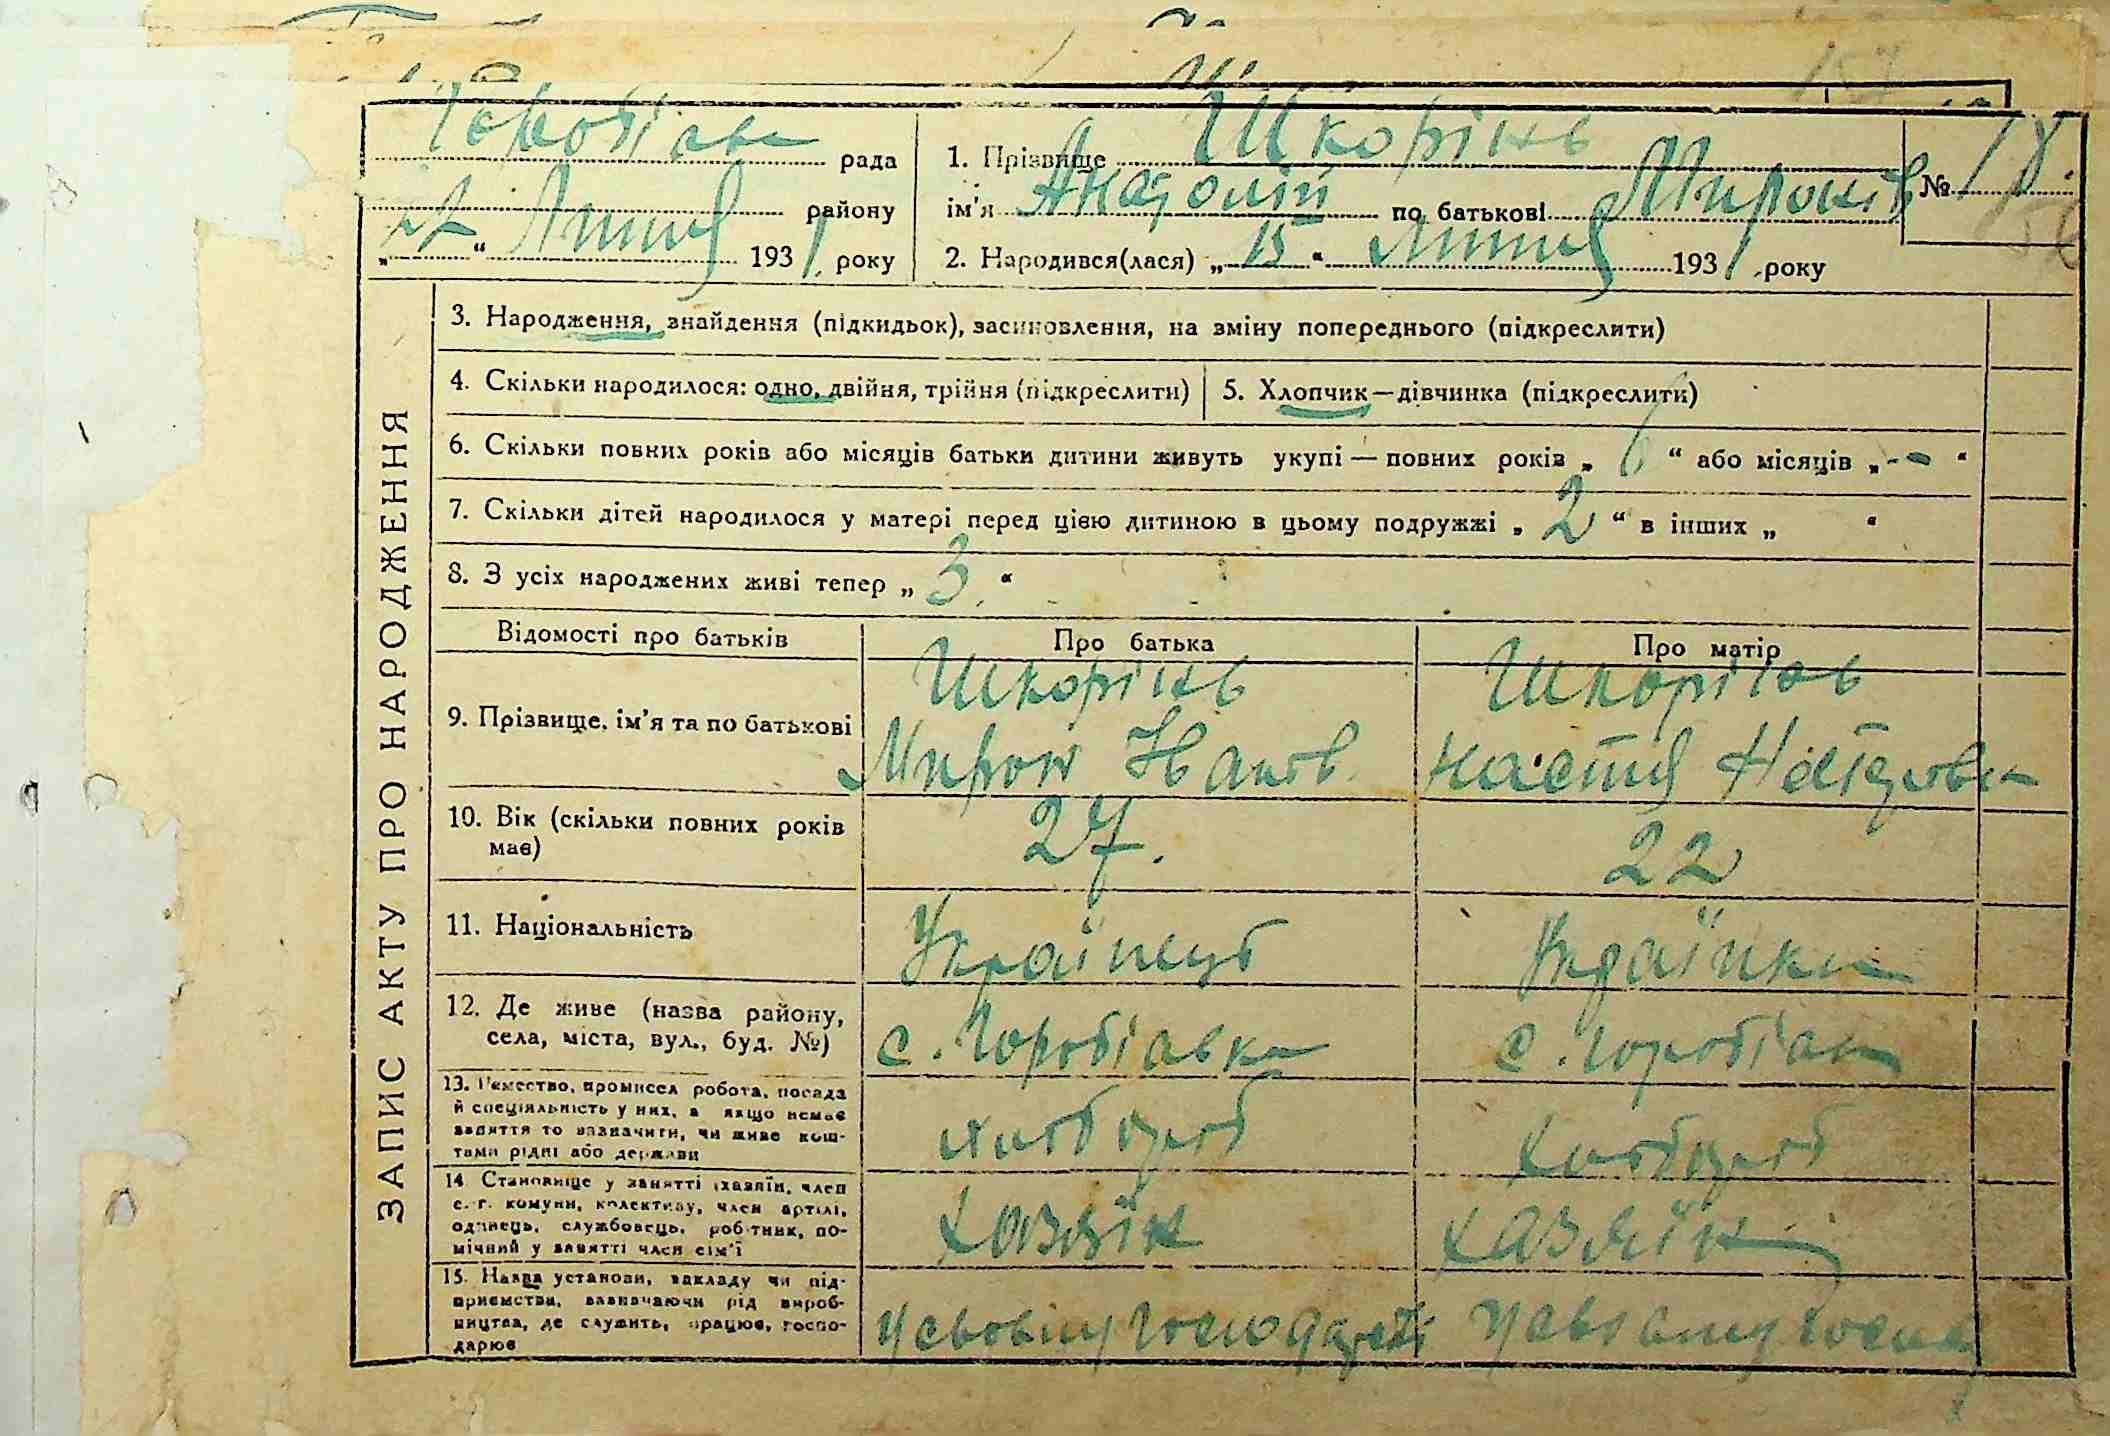 Горобіївська рада
району
„22“ Липня 1931 року
1. Прізвище Шкорінь
ім'я Анатолій по батькові Миронів
№ 18.
2. Народився(лася) „15“ Липня 1931 року
ЗАПИС АКТУ ПРО НАРОДЖЕННЯ
3. Народження, знайдення (підкидьок), засиновлення, на зміну попереднього (підкреслити)
4. Скільки народилося: одно, двійня, трійня (підкреслити)
5. Хлопчик—дівчинка (підкреслити)
6. Скільки повних років або місяців батьки дитини живуть укупі — повних років „6“ або місяців „-“
7. Скільки дітей народилося у матері перед цією дитиною в цьому подружжі „2“ в інших „ “
8. З усіх народжених живі тепер „3“
Відомості про батьків
Про батька
Про матір
9. Прізвище, ім'я та по батькові
Шкорінь
Мирон
Шкорінь
Настя
10. Вік (скільки повних років
має)
27.
22
11. Національність
Українець
Українка
12. Де живе (назва району,
села, міста, вул., буд. №)
с. Горобіївка
с. Горобіїв
13. Ремество, промисел робота, посада
й спеціяльність у них, а якщо немає
заняття то зазначити, чи живе кош-
тами рідні або держави
хлібороб
хлібороб
14 Становище у занятті (хазяїн, член
с.-г. комуни, колективу, член артілі,
одинець, службовець, робітник, по-
мічний у занятті член сім'ї
хазяїн
хазяїн
15. Назва установи, закладу чи під-
приємства, зазначаючи рід вироб-
ництва, де служить, працює, госпо-
дарює
у своєму господарстві
у своєму господ